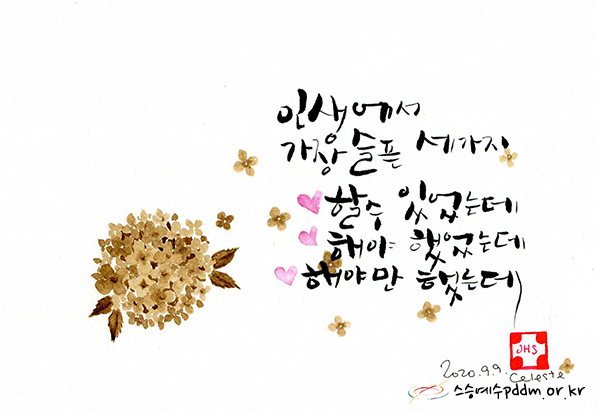 인생에서
가장 슬픈 세가지
할수 있었는데
해야 했었는데
해야만 했는데
JHS
2020.9.9.
Celeste
스승예수pddm.or.kr